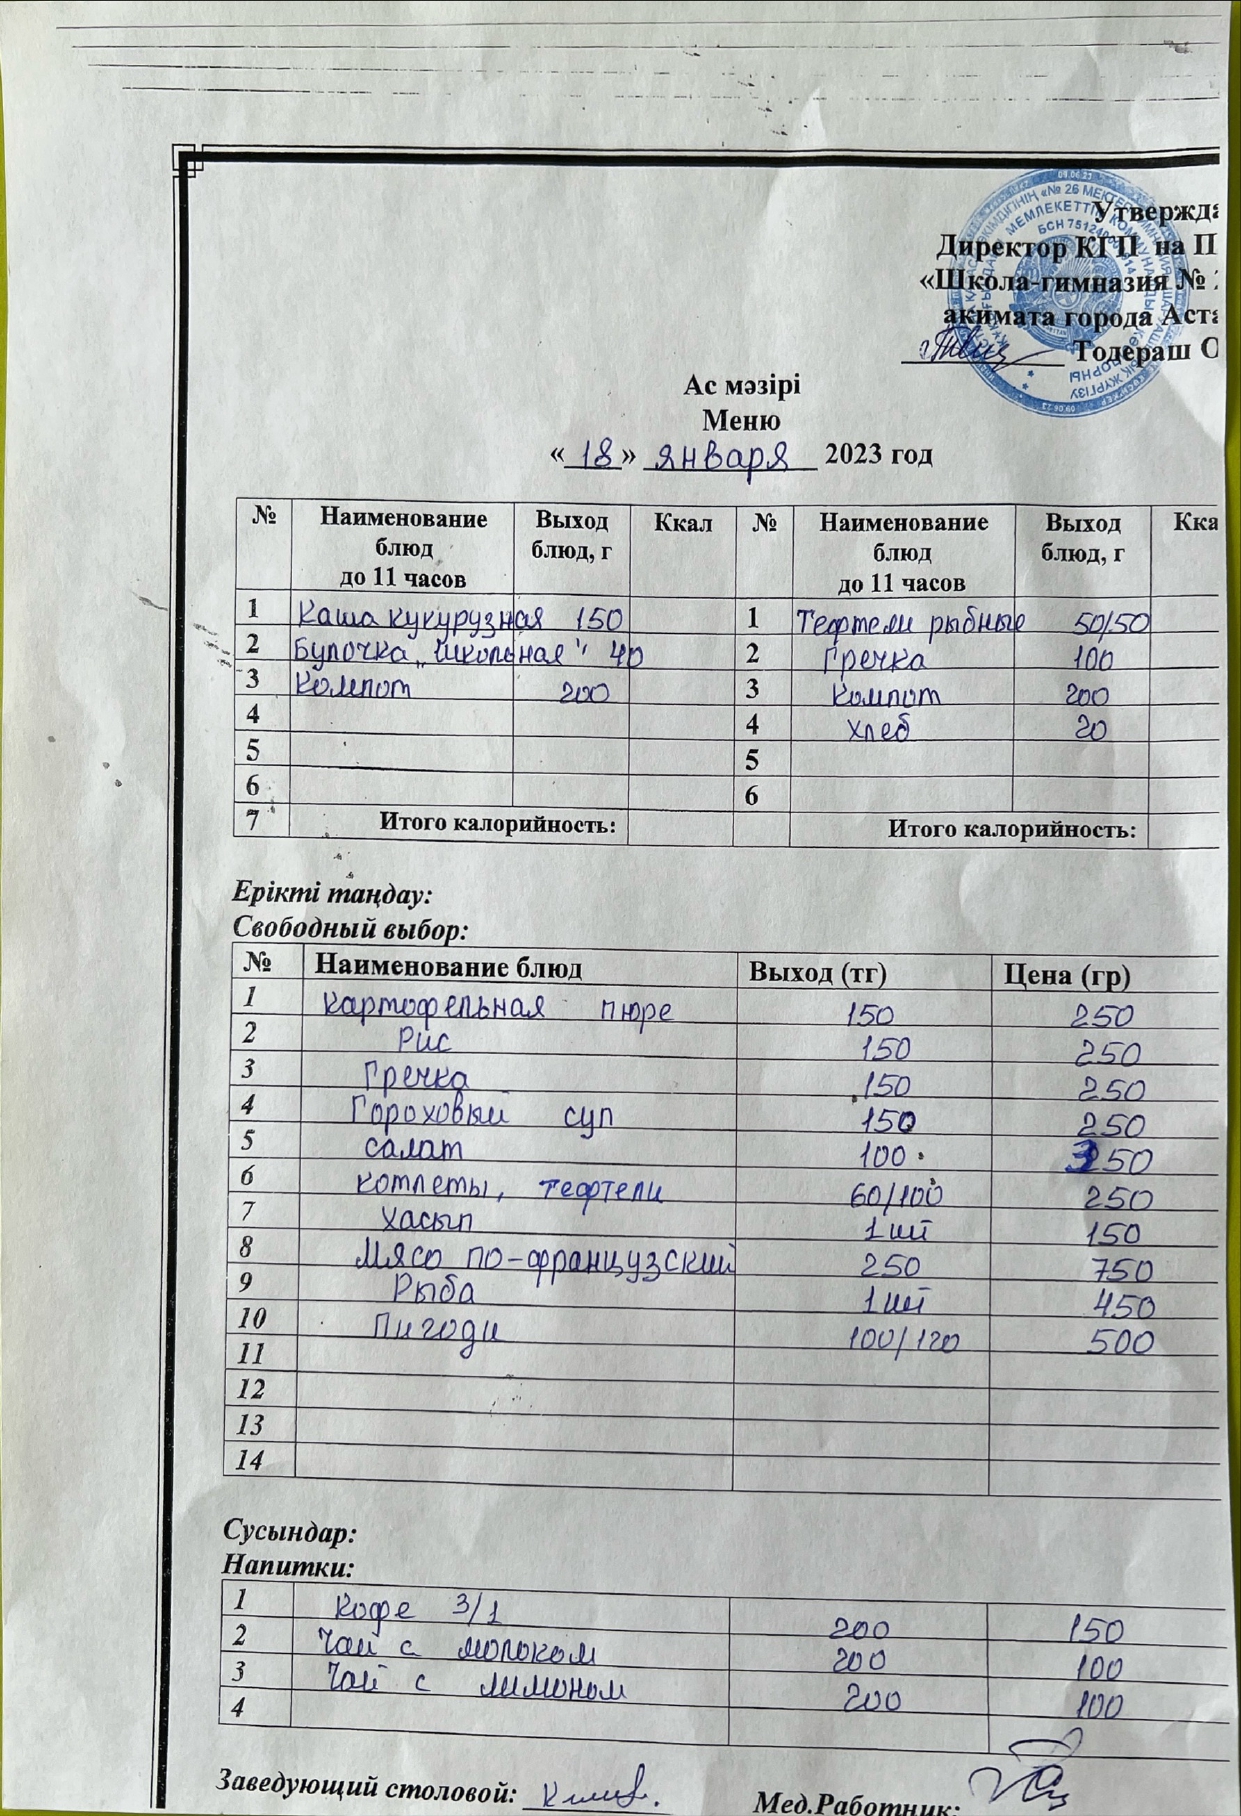 Утвержда
Директор КГП на П
«Школа-гимназия №
акимата города Аста
Тодераш О
Ас мәзірі
Меню
« 18 » января 2023 год
№ Наименование блюд до 11 часов Выход блюд, г Ккал № Наименование блюд до 11 часов Выход блюд, г Кка
1 Каша кукурузная 150 1 Тефтели рыбные 50/50
2 Булочка „Школьная" 40 2 Гречка 100
3 Компот 200 3 Компот 200
4 4 Хлеб 20
5 5
6 6
7 Итого калорийность: Итого калорийность:
Ерікті таңдау:
Свободный выбор:
№ Наименование блюд Выход (тг) Цена (гр)
1 Картофельная пюре 150 250
2 Рис 150 250
3 Гречка 150 250
4 Гороховый суп 150 250
5 салат 100 350
6 котлеты, тефтели 60/100 250
7 хасып 1 шт 150
8 Мясо по-французский 250 750
9 Рыба 1 шт 450
10 Пигоди 100/120 500
11
12
13
14
Сусындар:
Напитки:
1 Кофе 3/1 200 150
2 Чай с молоком 200 100
3 Чай с лимоном 200 100
4
Заведующий столовой:
Мед.Работник: